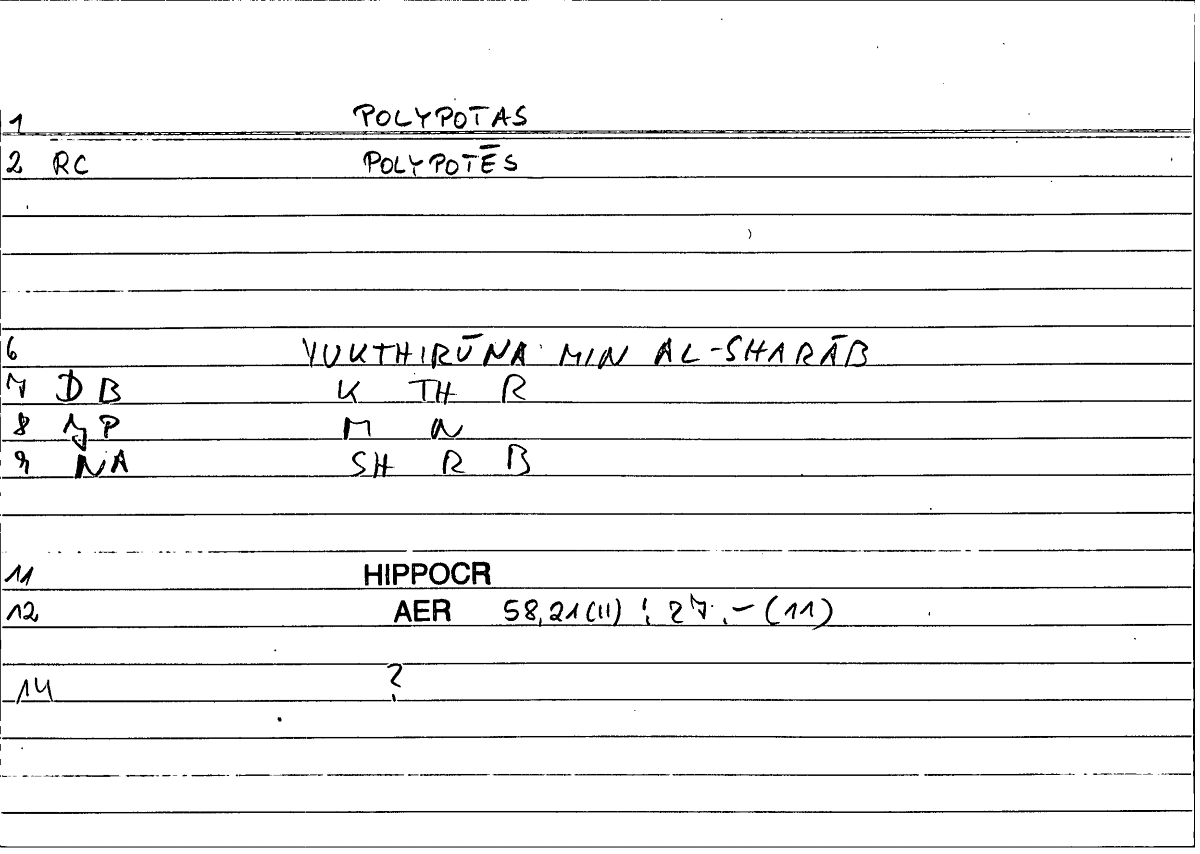 1 POLYPOTAS
2 RC POLYPOTĒS
6 YUKTHIRŪNA MIN AL-SHARĀB
7 DB K TH R
8 P M N
9 NA SH R B
11 HIPPOCR
12 AER 58,21(11) ; 27.-(11)
14 ?